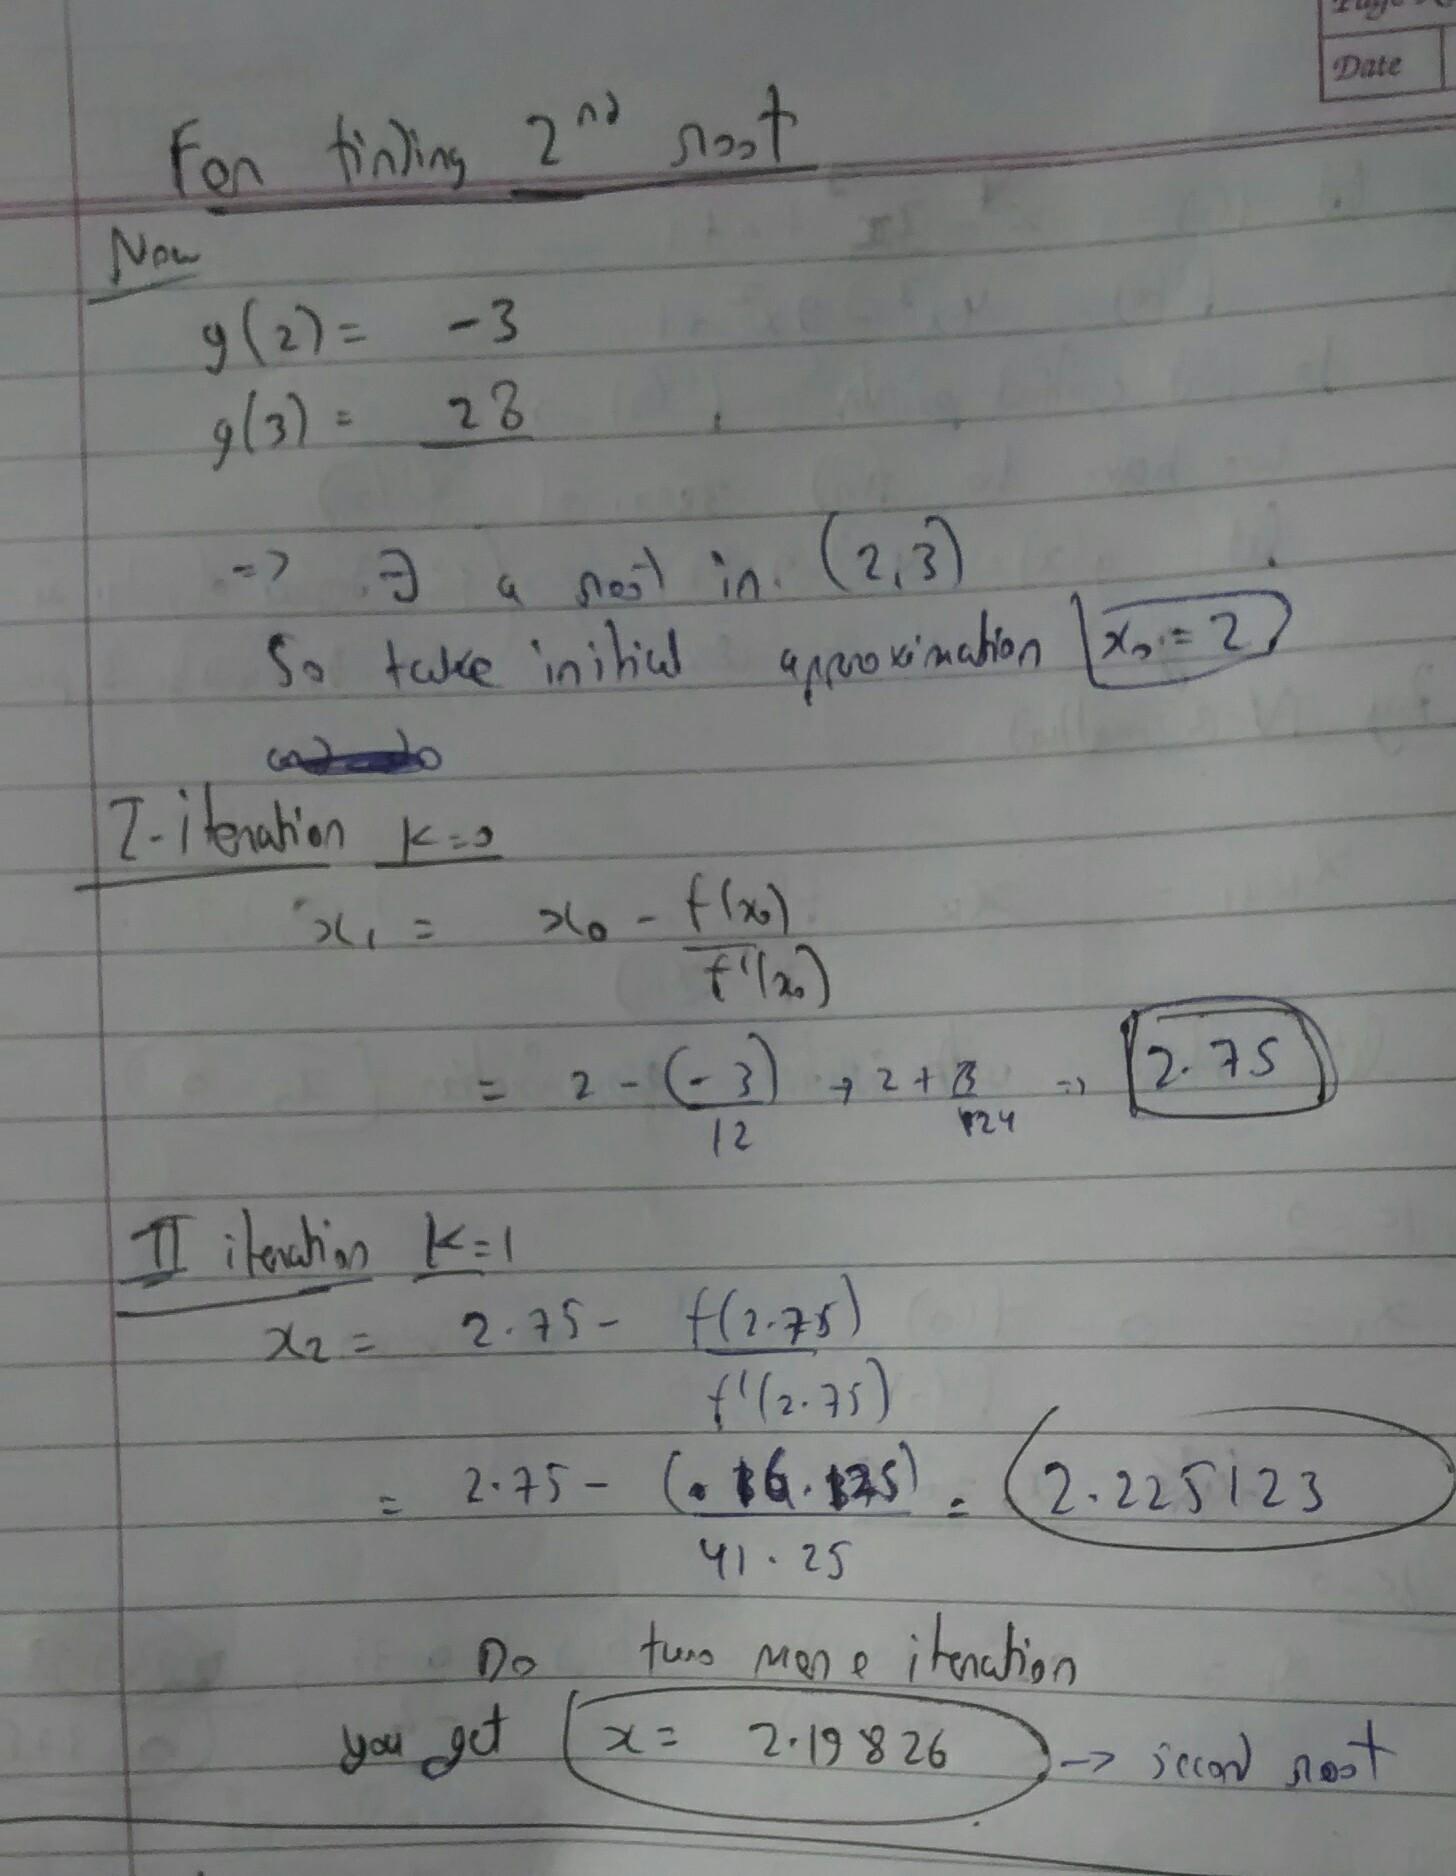 Date
For finding 2nd root
Now
g(2) = -3
g(3) = 28
=> ∃ a root in (2,3)
So take initial approximation x₀ = 2
I-iteration K=0
x₁ = x₀ - f(x₀)/f'(x₀)
= 2 - (-3)/12 → 2 + 3/24 => 2.75
II iteration K=1
x₂ = 2.75 - f(2.75)/f'(2.75)
= 2.75 - /41.25 = 2.225123
Do two more iteration
you get x = 2.19826 -> second root